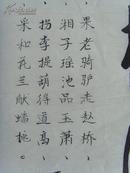 果老骑驴走赵桥
湘子瑶池品玉萧
拐李提葫得道高
采和花兰献蟠桃